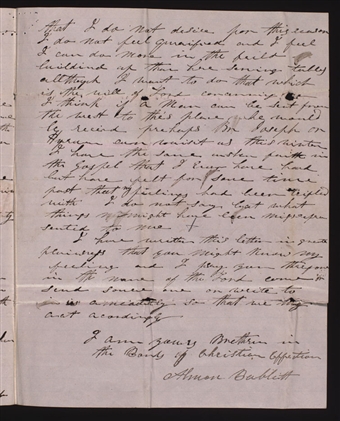 that I do not desire for this reason
I do not feel qualified and I feel
I can do more in the field
building up than here serving tables
allthough I want to do that which
is the will of Lord concerning me
I think if a Man can be sent from
the west to this place he would
be receivd prehaps Br Joseph or
Hyrum can visit us this winter
I have the same unshaken faith in
the Gospel that I ever have had
but have felt for some time
past that feelings had been trifled
with I do not say but what
things might have been misrepre
sented to me
I have written this letter in great
plainness that you might know my
feelings and I pray you therefore
in the name of the Lord
send some one or write to
us immediately so that we may
act acordingly
I am yours Brethren in
the Bonds of Christian Affection
Almon Babbitt